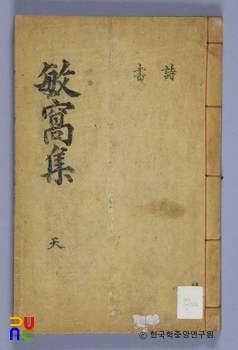 敏窩集
天
詩
書
© 한국학중앙연구원